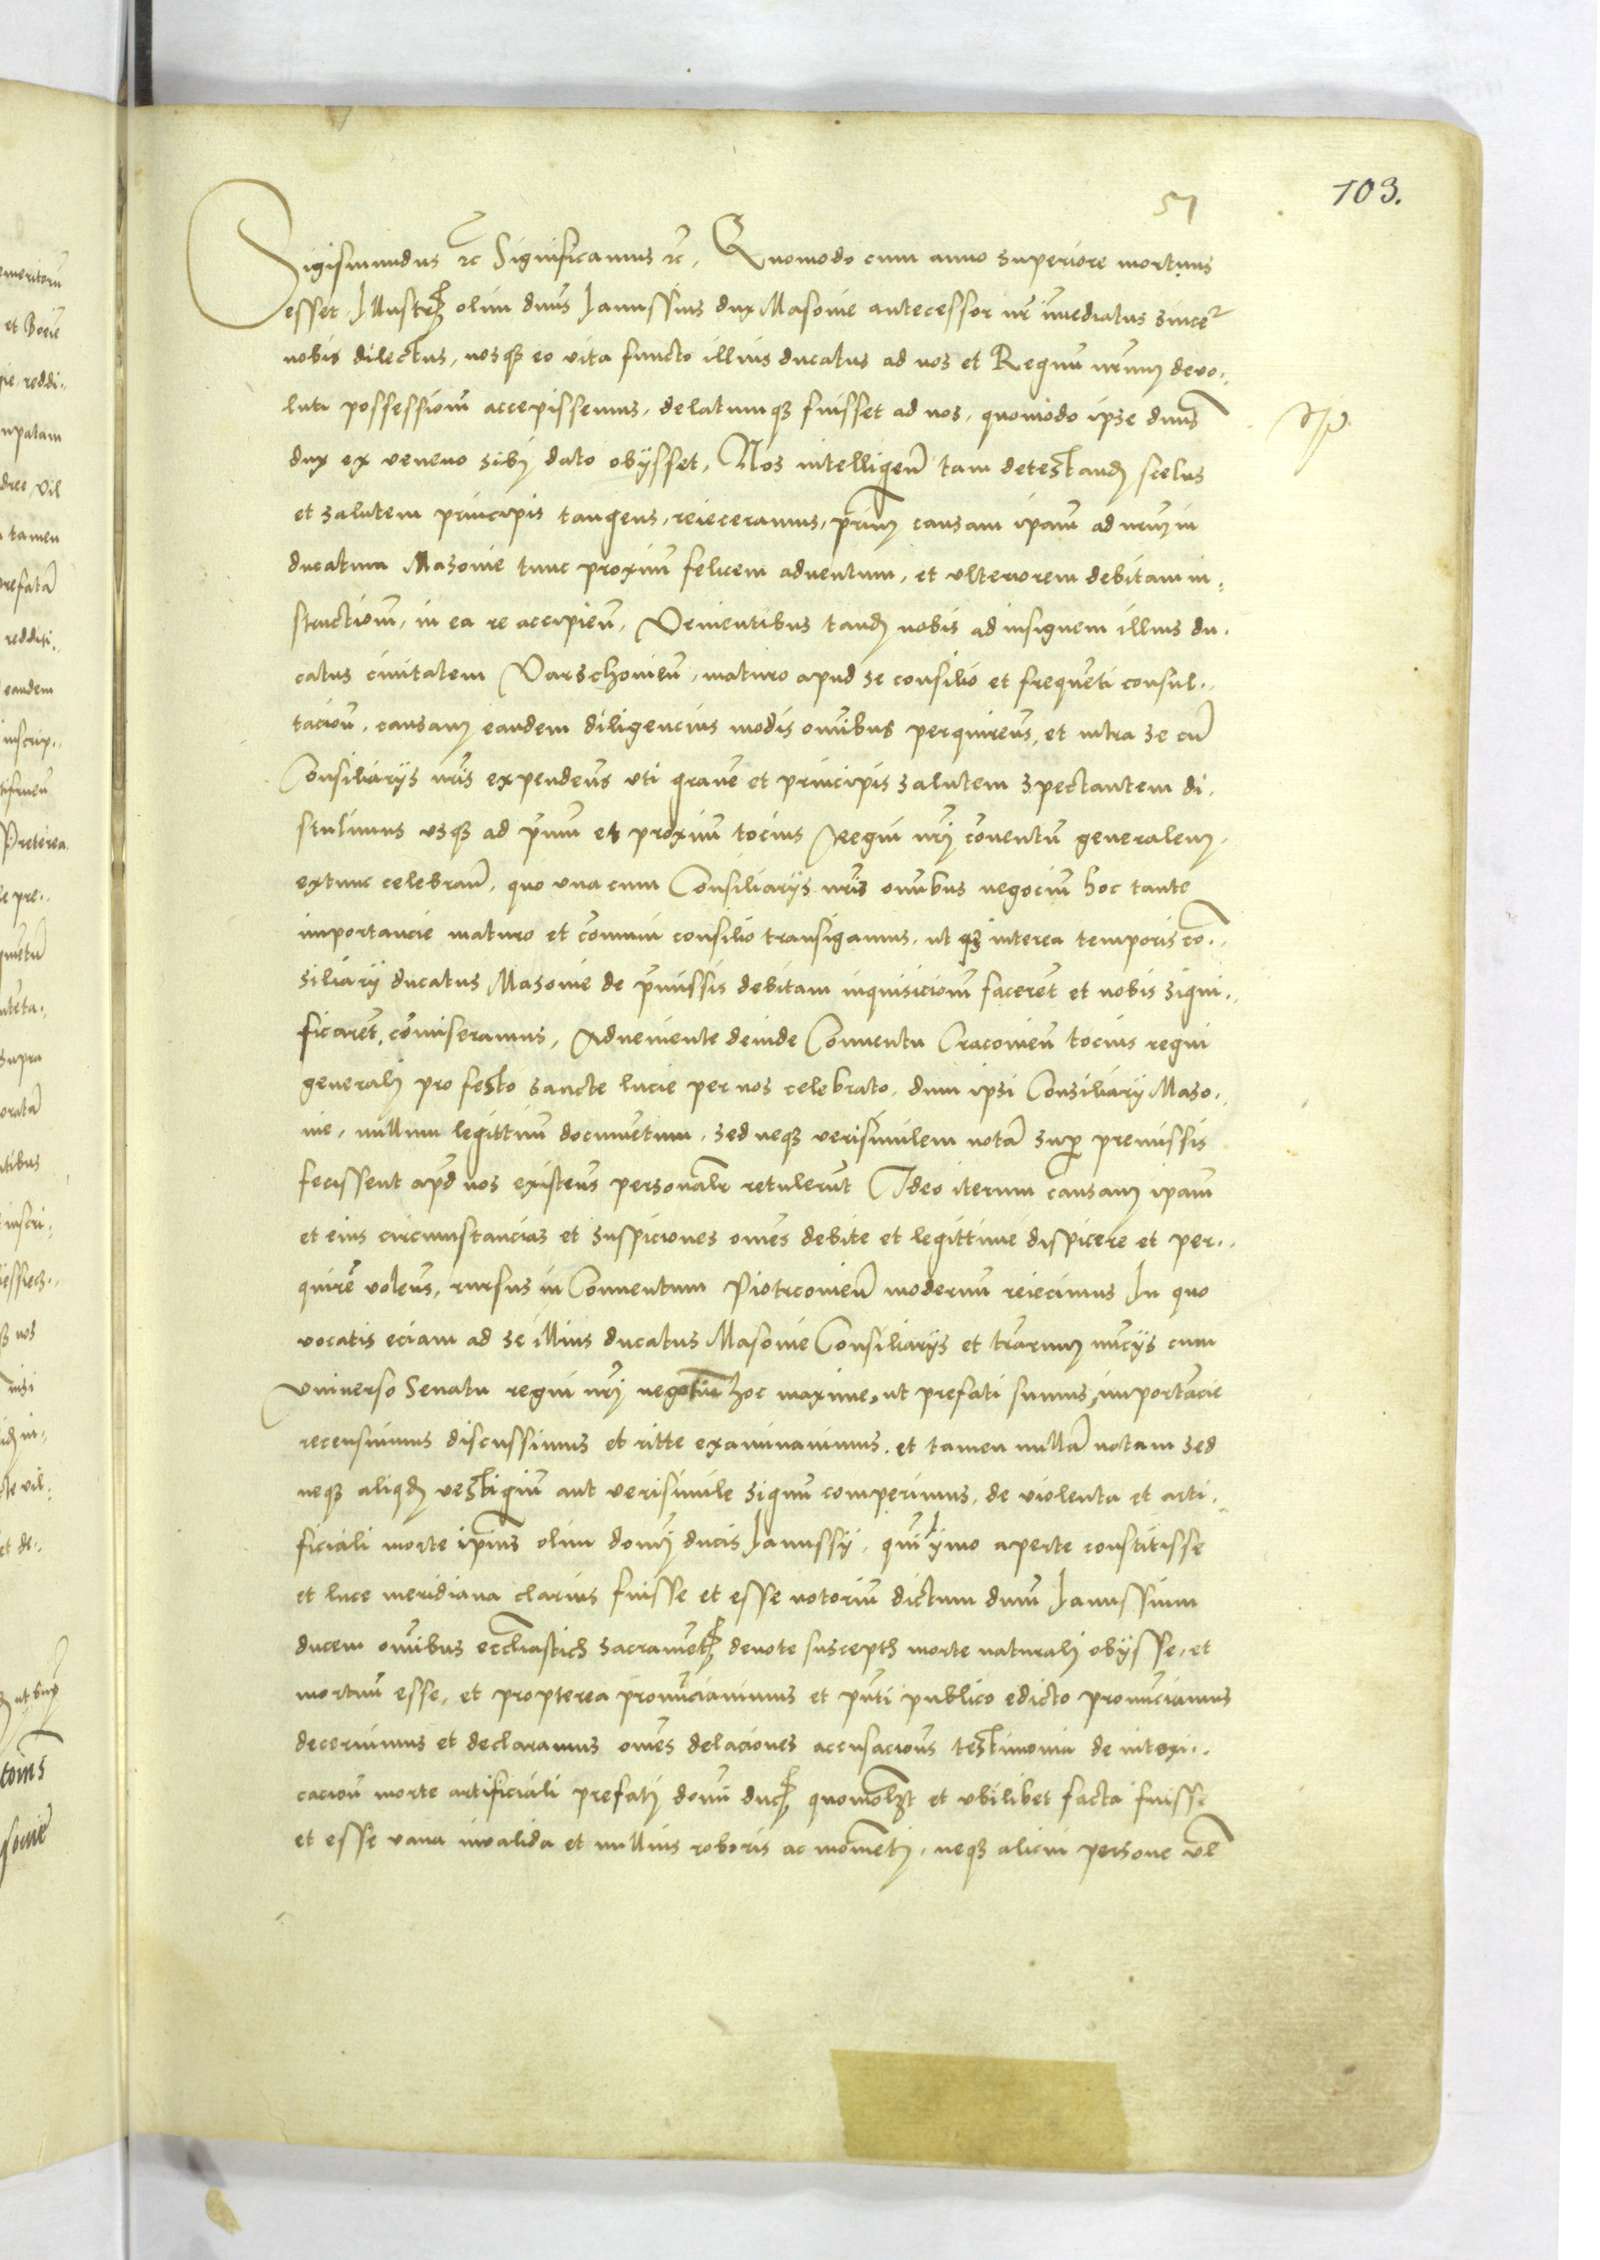 103.
51
Sigismundus etc Significamus etc. Quomodo cum anno superiore mortuus
esset Illustris olim dnus Janussius dux Masovie antecessor nr immediatus sincere
nobis dilectus, nosq eo vita functo illius ducatus ad nos et Regnu nrum devo..
luti possessionem accepissemus, delatumq fuisset ad nos, quomodo ipse dnus
dux ex veneno sibj dato obijsset, Nos intelligen tam detestand scelus
et salutem principis tangens, reieceramus, primu causam ipam ad nrum in
ducatum Masovie tunc proximu felicem adventum, et ulteriorem debitam in.
structionem, in ea re accipien, Venientibus tand nobis ad insignem illius du.
catus civitatem Varschovien, maturo apud se consilio et frequenti consul..
tacion, causam eandem diligencius modis omnibus perquirens, et intra se cu
Consiliarijs nris expendens uti grave et principis salutem spectantem di.
stulimus usq ad pnum et proximu tocius Regni nrj conventu generalem,
extunc celebran, quo una cum Consiliarijs nris omnibus negociu hoc tante
importancie maturo et comuni consilio transigamus, ut q interea temporis con..
siliarij ducatus Masovie de pmissis debitam inquisicionem facerent et nobis signi..
ficarent, comiseramus, Adveniente deinde Conventu Cracovien tocius regni
generali pro festo sancte lucie per nos celebrato, dum ipsi Consiliarij Maso..
vie, nullum legittimu documentum, sed neq verisimilem notam sup premissis
fecissent apud nos existens personalr retulerunt Ideo iterum causam ipam
et eius circumstancias et suspiciones omnes debite et legittime dispicere et per..
quirere volens, rursus in Conventum Piotrcovien modernu reiecimus In quo
vocatis eciam ad se illius ducatus Masovie Consiliarijs et trarum nuncijs cum
universo Senatu regni nrj negotiu hoc maxime, ut prefati sumus, importancie
recensuimus discussimus et ritte examinavimus, et tamen nulla notam sed
neq aliqd vestigium aut verisimile signu comperimus, de violenta et arti.
ficiali morte ipius olim domni ducis Janussij, quinymo aperte constitisse
et luce meridiana clarius fuisse et esse notorium dictum dnum Janussium
ducem omnibus ecclesiasticis sacramentis devote susceptis morte naturali obijsse, et
mortuu esse, et propterea pronunciavimus et pnti publico edicto pronunciamus
decernimus et declaramus omnes delaciones accusaciones testimonia de intoxi..
cacion morte artificiali prefati domni ducis quomolzt et ubilibet facta fuisse
et esse vana invalida et nullius roboris ac momentj, neq alicui persone vel